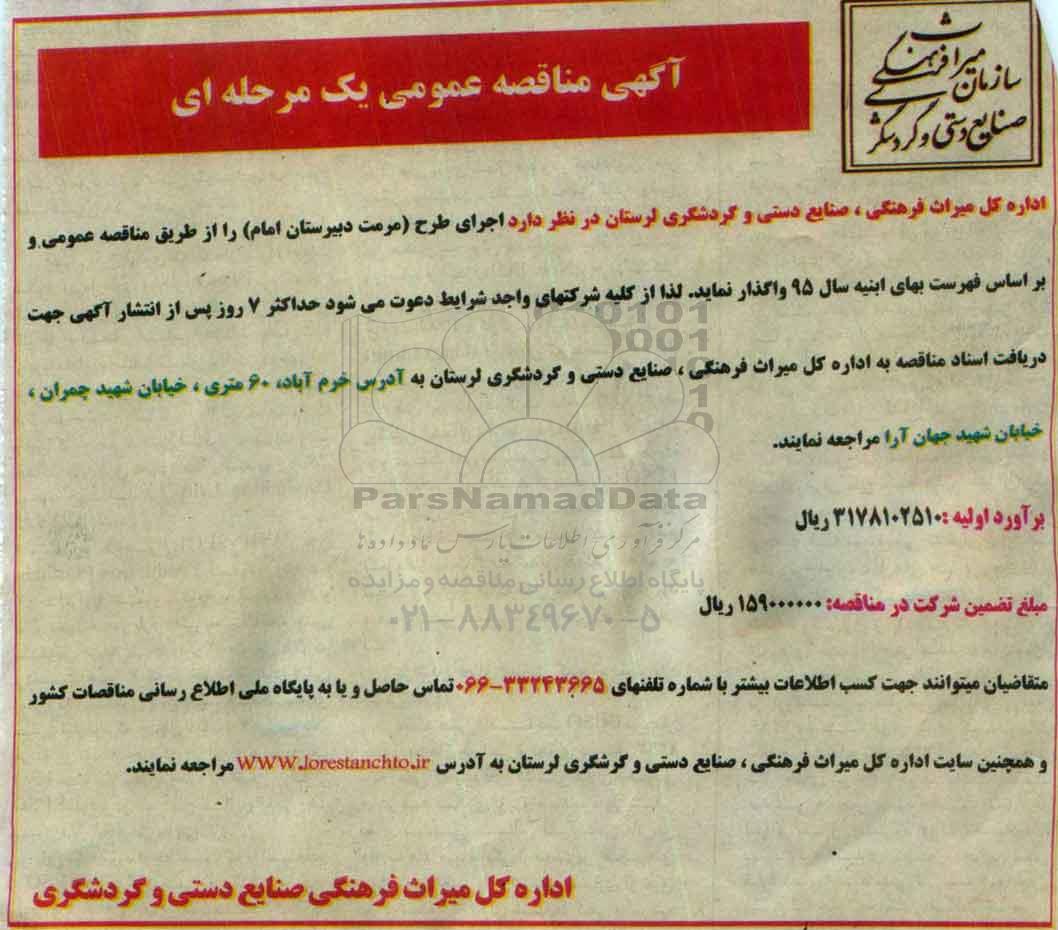 سازمان میراث فرهنگی
صنایع دستی و گردشگری
آگهی مناقصه عمومی یک مرحله ای
اداره کل میراث فرهنگی ، صنایع دستی و گردشگری لرستان در نظر دارد اجرای طرح (مرمت دبیرستان امام) را از طریق مناقصه عمومی و
بر اساس فهرست بهای ابنیه سال ۹۵ واگذار نماید. لذا از کلیه شرکتهای واجد شرایط دعوت می شود حداکثر ۷ روز پس از انتشار آگهی جهت
دریافت اسناد مناقصه به اداره کل میراث فرهنگی ، صنایع دستی و گردشگری لرستان به آدرس خرم آباد، ۶۰ متری ، خیابان شهید چمران ،
خیابان شهید جهان آرا مراجعه نمایند.
برآورد اولیه :۳۱۷۸۱۰۲۵۱۰ ریال
مبلغ تضمین شرکت در مناقصه: ۱۵۹۰۰۰۰۰۰ ریال
متقاضیان میتوانند جهت کسب اطلاعات بیشتر با شماره تلفنهای ۳۳۲۴۳۶۶۵-۰۶۶ تماس حاصل و یا به پایگاه ملی اطلاع رسانی مناقصات کشور
و همچنین سایت اداره کل میراث فرهنگی ، صنایع دستی و گرشگری لرستان به آدرس WWW.lorestanchto.ir مراجعه نمایند.
اداره کل میراث فرهنگی صنایع دستی و گردشگری
ParsNamadData
مرکز فرآوری اطلاعات پارس نماد داده ها
پایگاه اطلاع رسانی مناقصه و مزایده
۰۲۱-۸۸۳۴۹۶۷۰-۵